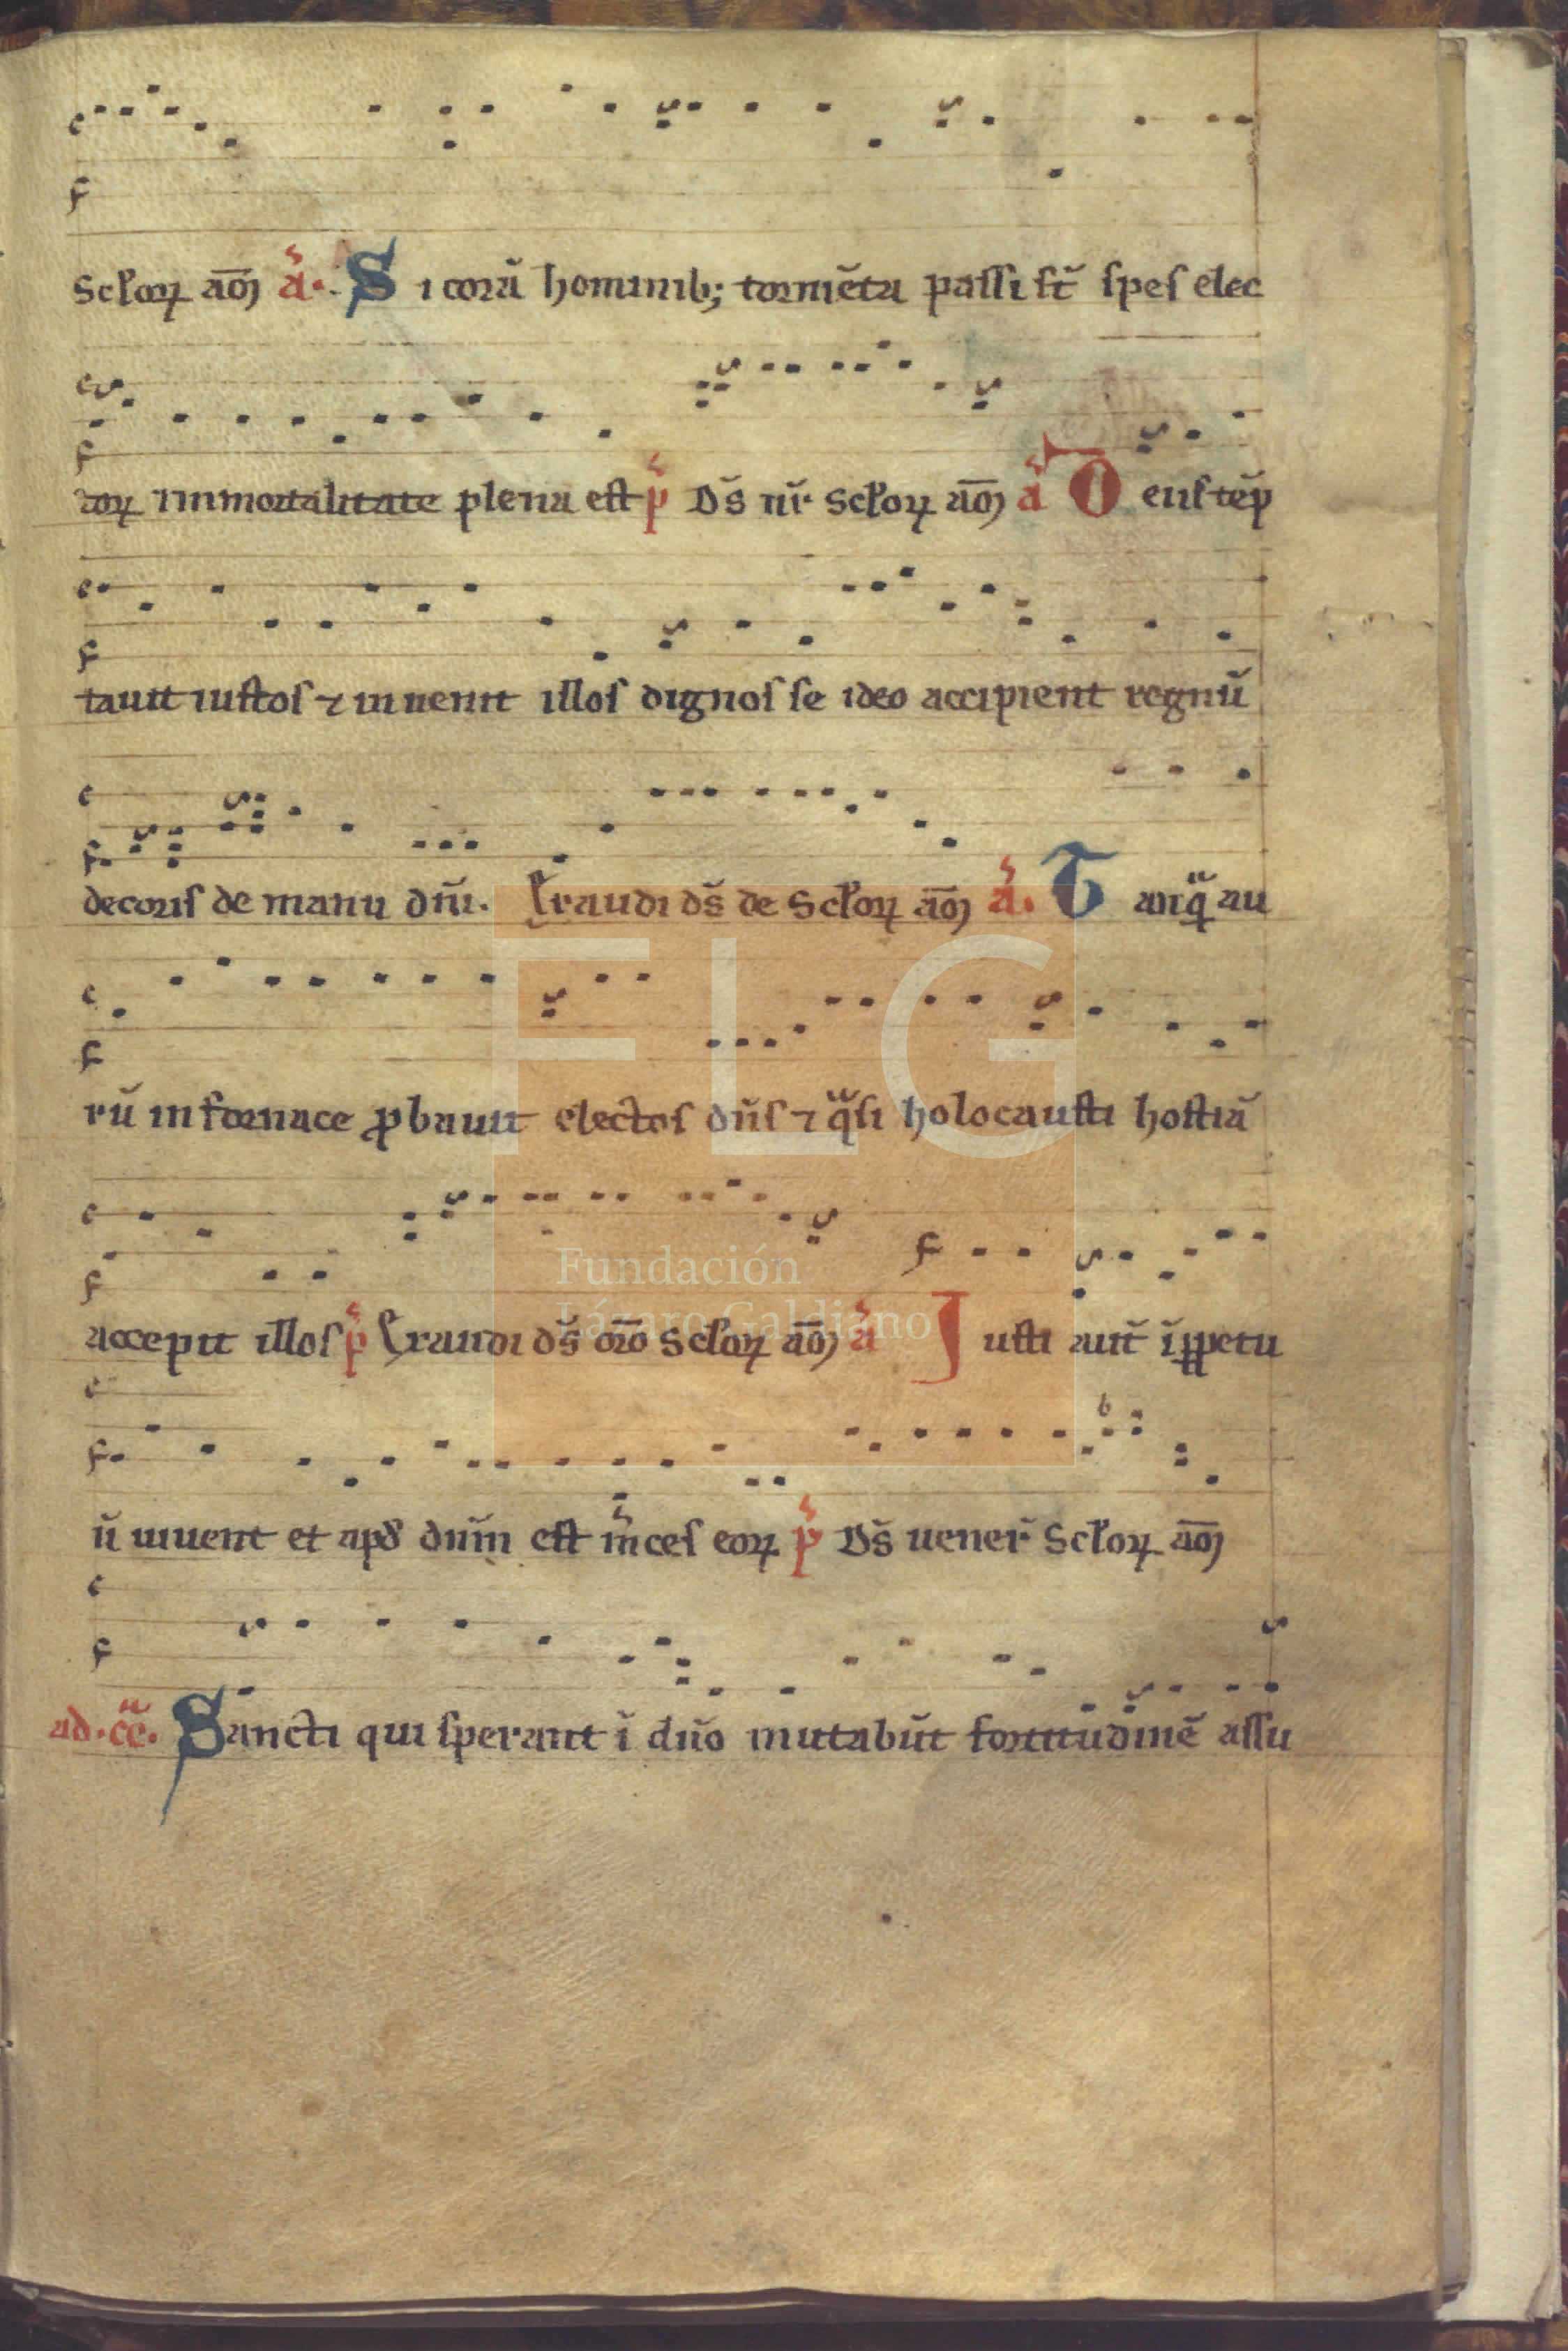 scłoꝝ am̄ aᷓ. S i corā hominib; tormēta passi st̄ spes elec
toꝝ immortalitate plena est pᷓ Ds̄ nr̄ scłoꝝ am̄ aᷓ D eus tēp
tauit iustos ⁊ inuenit illos dignos se ideo accipient regnū
decoris de manu dn̄i. Exaudi ds̄ de scłoꝝ am̄ aᷓ. T anq̄ au
rū in fornace ꝓbauit electos dn̄s ⁊ q̄si holocausti hostiā
accepit illos pᷓ Exaudi ds̄ or̄o scłoꝝ am̄ aᷓ J usti aut̄ ī ꝑpetu
ū uiuent et apđ dn̄m est mᷓces eoꝝ pᷓ Ds̄ uener̄ scłoꝝ am̄
ad. c̄c̄. Sancti qui sperant ī dn̄o mutabūt fortitudinē assu
FLG
Fundación
Lázaro Galdiano